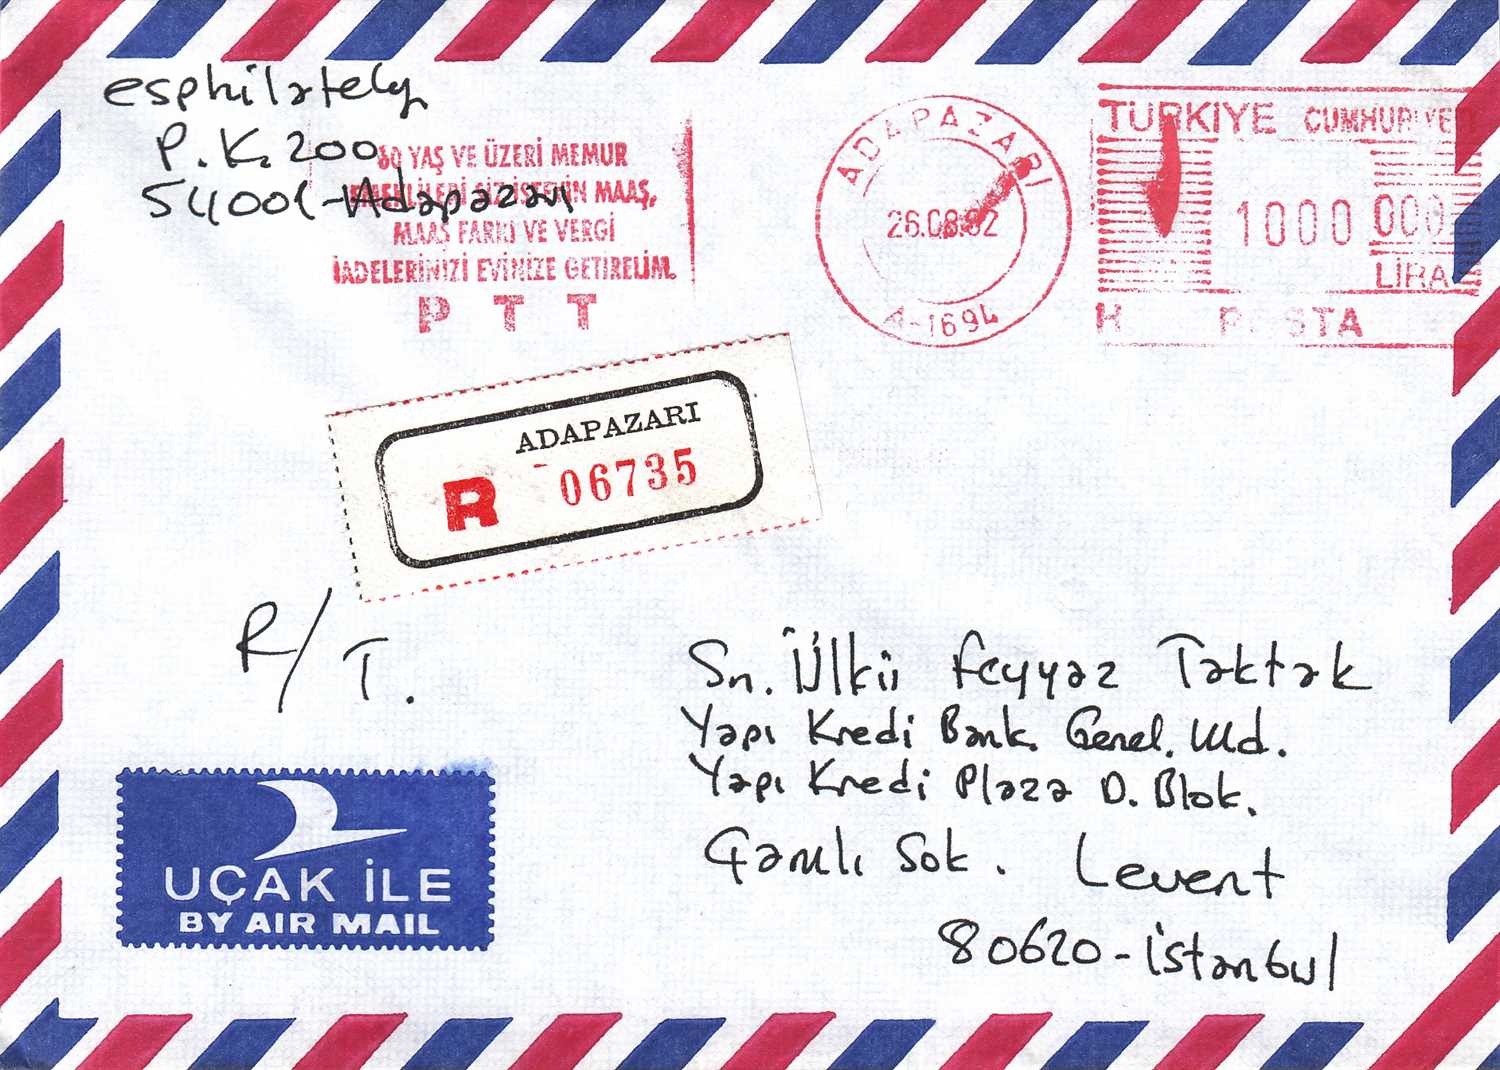 esphilately
P.K. 200
54001-Adapazarı
60 YAŞ VE ÜZERİ MEMUR
EMEKLİLERİ SİZ İSTEYİN MAAŞ,
MAAŞ FARKI VE VERGİ
İADELERİNİZİ EVİNİZE GETİRELİM.
PTT
ADAPAZARI
26.08.92
A-1694
TÜRKİYE CUMHURİYE
1000 000
LİRA
H POSTA
ADAPAZARI
R 06735
R/T.
Sn. Ülkü Feyyaz Taktak
Yapı Kredi Bank. Genel. Md.
Yapı Kredi Plaza D. Blok.
Çamlı Sok. Levent
80620-İstanbul
UÇAK İLE
BY AIR MAIL